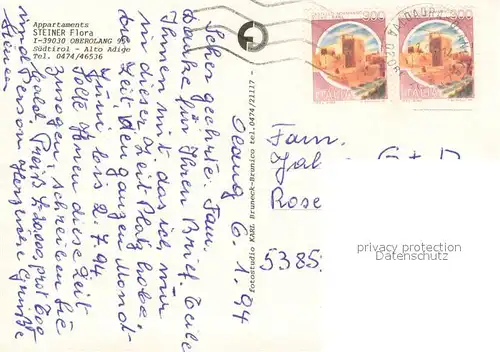 Appartaments
STEINER Flora
I-39030 OBEROLANG 95f
Südtirol - Alto Adige
Tel. 0474/46536
Olang 6. 1. 94
Sehr geehrte Fam.
Danke für Ihren Brief. Teile
Ihnen mit, das ich nur
in dieser Zeit Platz habe.
Zeit den ganzen Monat
Juni bis 2.7.94
Sollte Ihnen diese Zeit
zusagen, schreiben Sie
bald. Preis L 20.000, pro Tag
und Person. Herzliche Grüße
Steiner
Fotostudio KARL Bruneck-Brunico tel.0474/21117 -
300
ITALIA
300
ITALIA
Fam.
Rose
5385
privacy protection
Datenschutz